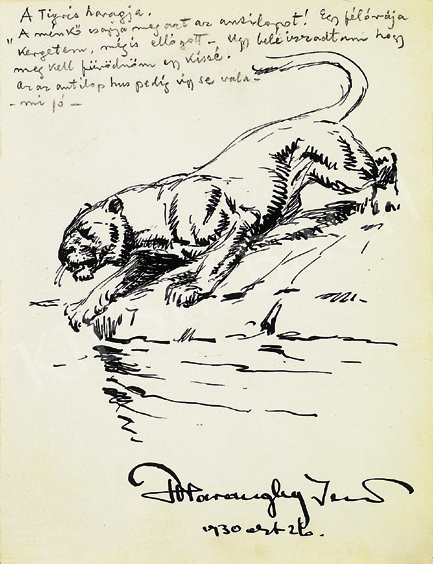 A Tigris haragja.
"A ménkő csapja meg azt az antilopot! Egy félórája
kergetem, mégis ellógott – Úgy beleizzadtam hogy
meg kell fürödnöm egy kissé.
az antilop hus pedig úgy se vala-
– mi jó –
Haranghy Jenő
1930 okt 26.